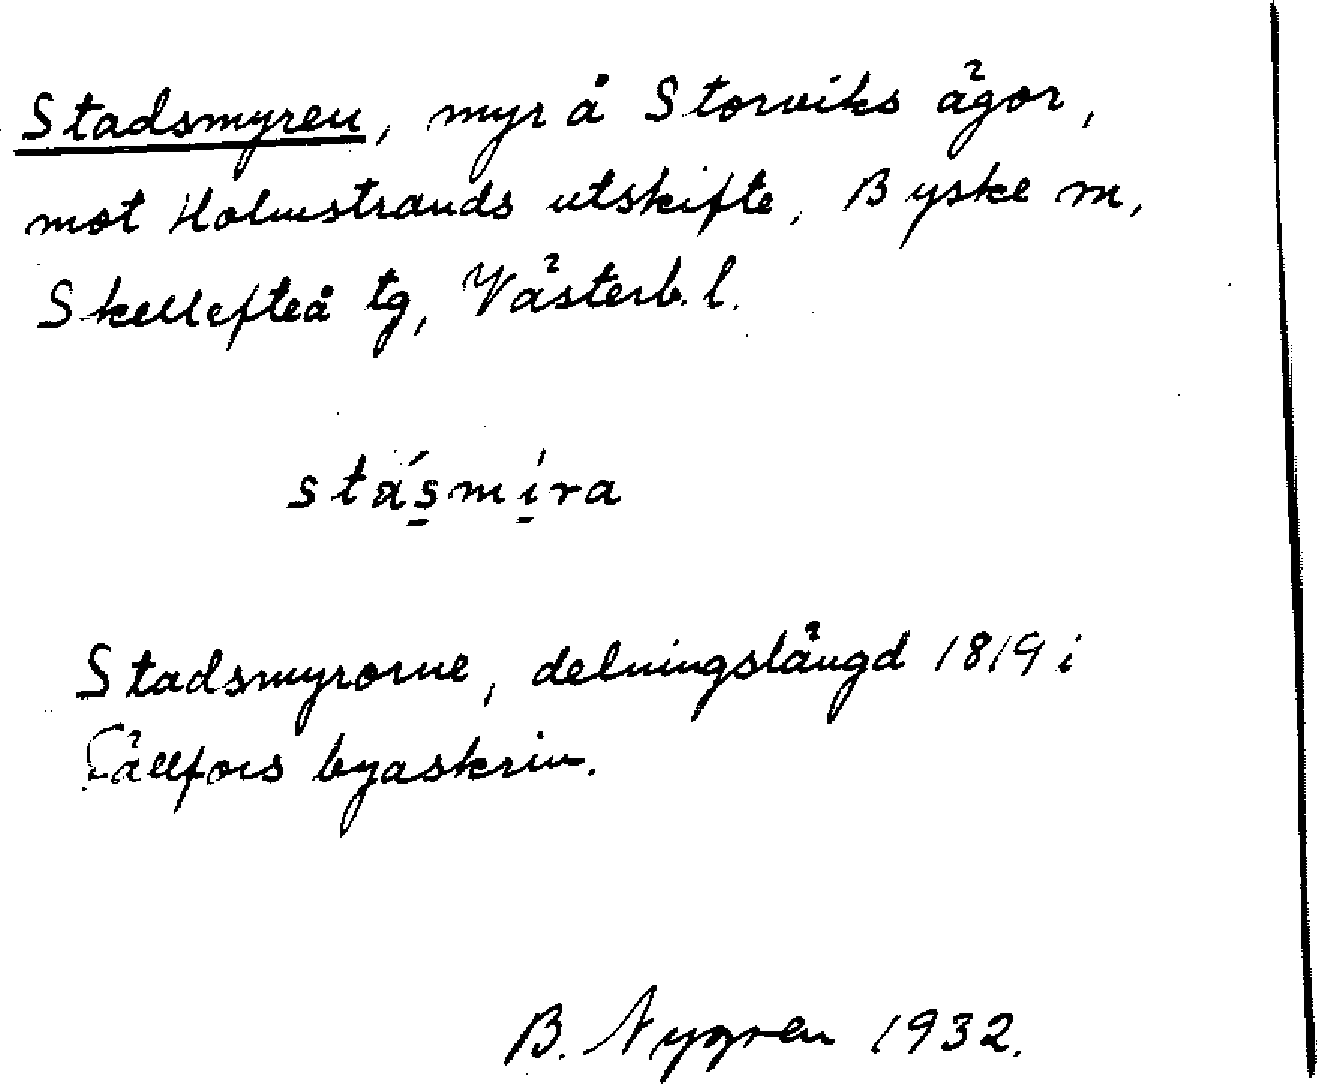 Stadsmyren, myr å Storviks ägor,
mot Holmstrands utskifte, Byske m,
Skellefteå tg, Västerb. l.
stás̱mí̱ra
Stadsmyrorne, delningslängd 1819 i
Fällfors byaskrin.
B. Nygren 1932.